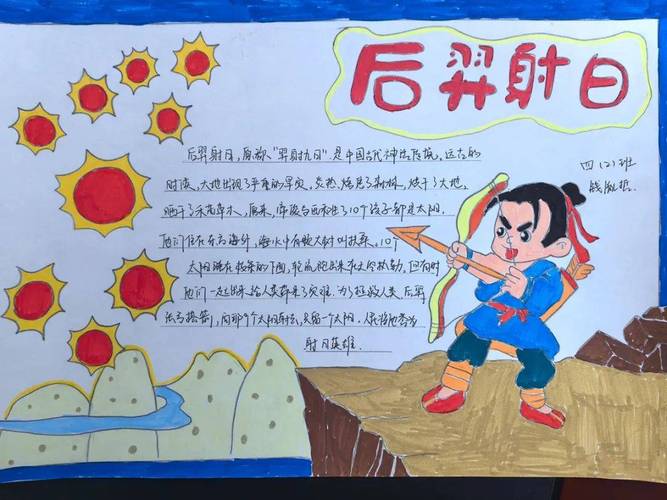 后羿射日
后羿射日，原称"羿射九日"是中国古代神话传说，远古的
时候，大地出现了严重的旱灾，炎热烧焦了森林，烘干了大地，
晒干了禾苗草木，原来，帝俊与羲和生了10个孩子都是太阳，
他们住在东方海外，海水中有棵大树叫扶桑。10个
太阳睡在扶桑的下面，轮流跑出来在天空执勤，但有时
他们一起出来给人类带来了灾难。为了拯救人类，后羿
张弓搭箭，向那9个太阳射去，只留一个太阳，人们称他为
射日英雄
四（2）班